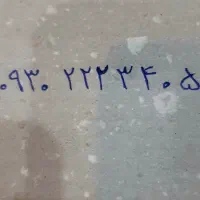 ۰۹۳۰ ۲۲۲۳۴۰۵